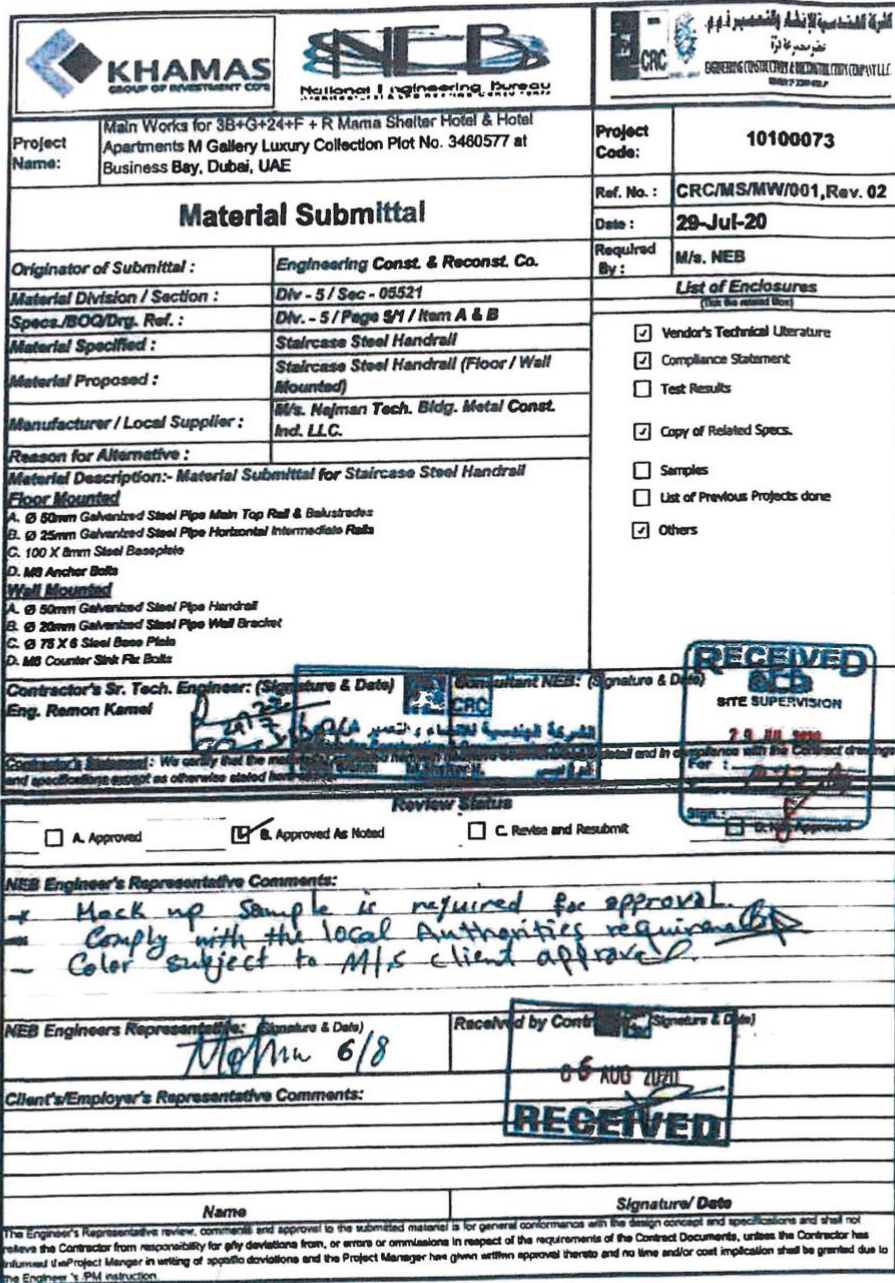 KHAMAS
GROUP OF INVESTMENT CO'S
NEB
National Engineering Bureau
CRC
ENGINEERING CONSTRUCTION & RECONSTRUCTION COMPANY L.L.C.
Project Name:
Main Works for 3B+G+24+F + R Mama Shelter Hotel & Hotel
Apartments M Gallery Luxury Collection Plot No. 3460577 at
Business Bay, Dubai, UAE
Project Code:
10100073
Material Submittal
Ref. No. : CRC/MS/MW/001,Rev. 02
Date : 29-Jul-20
Required By : M/s. NEB
Originator of Submittal : Engineering Const. & Reconst. Co.
Material Division / Section : Div - 5 / Sec - 05521
Specs./BOQ/Drg. Ref. : Div. - 5 / Page 5/1 / Item A & B
Material Specified : Staircase Steel Handrail
Material Proposed : Staircase Steel Handrail (Floor / Wall
Mounted)
Manufacturer / Local Supplier : M/s. Najman Tech. Bldg. Metal Const.
Ind. LLC.
Reason for Alternative :
List of Enclosures
(Tick the related Box)
Vendor's Technical Literature
Compliance Statement
Test Results
Copy of Related Specs.
Samples
List of Previous Projects done
Others
Material Description:- Material Submittal for Staircase Steel Handrail
Floor Mounted
A. Ø 50mm Galvanized Steel Pipe Main Top Rail & Balustrades
B. Ø 25mm Galvanized Steel Pipe Horizontal Intermediate Rails
C. 100 X 8mm Steel Baseplate
D. M8 Anchor Bolts
Wall Mounted
A. Ø 50mm Galvanized Steel Pipe Handrail
B. Ø 20mm Galvanized Steel Pipe Wall Bracket
C. Ø 75 X 6 Steel Base Plate
D. M6 Counter Sink Fix Bolts
Contractor's Sr. Tech. Engineer: (Signature & Date)
Eng. Remon Kamel
CRC
الشركة الهندسية للإنشاء و التعمير
Consultant NEB: (Signature & Date)
RECEIVED
NEB
SITE SUPERVISION
29 JUL 2020
For :
Sign.:
Contractor's Statement : We certify that the detail and in compliance with the Contract drawings
and specifications except as otherwise stated
Review Status
A. Approved
B. Approved As Noted
C. Revise and Resubmit
D. Not Approved
NEB Engineer's Representative Comments:
Mock up Sample is required for approval.
Comply with the local Authorities requirements
- Color subject to M/s client approval.
NEB Engineers Representative: (Signature & Date)
6/8
Received by (Signature & Date)
06 AUG 2020
RECEIVED
Client's/Employer's Representative Comments:
Name
Signature/ Date
The Engineer's Representative review, comments and approval to the submitted material is for general conformance with the design concept and specifications and shall not
relieve the Contractor from responsibility for any deviations from, or errors or ommissions in respect of the requirements of the Contract Documents, unless the Contractor has
informed theProject Manger in writing of specific deviations and the Project Manager has given written approval thereto and no time and/or cost implication shall be granted due to
the Engineer 's /PM instruction.